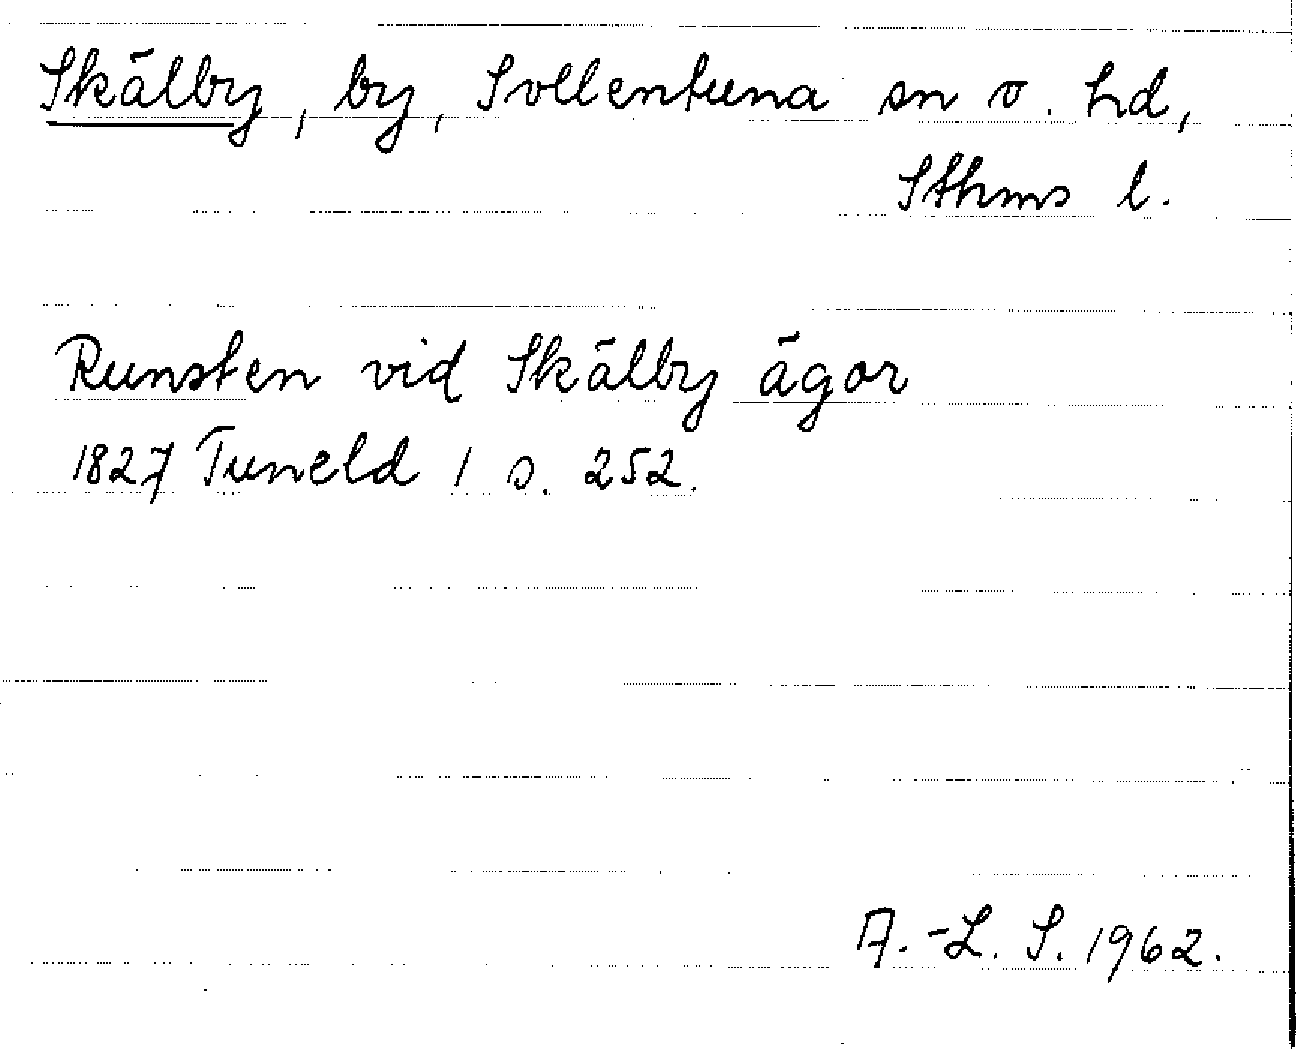 Skälby, by, Sollentuna sn o. hd,
Sthms l.
Runsten vid Skälby ägor
1827 Tuneld 1 s. 252.
A.-L. S. 1962.